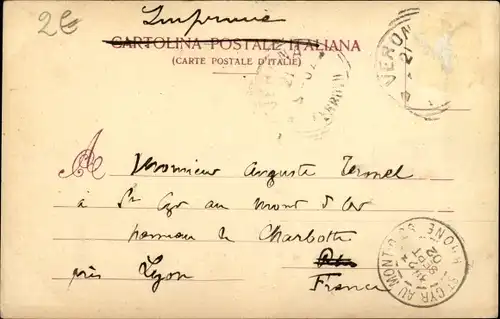 2€
Imprimé
CARTOLINA POSTALE ITALIANA
(CARTE POSTALE D'ITALIE)
VERON
21
A Monsieur Auguste
à St Cyr au Mont d'Or
hameau de Charbotte
près Lyon
France
ST CYR AU MONT D'OR RHONE
02